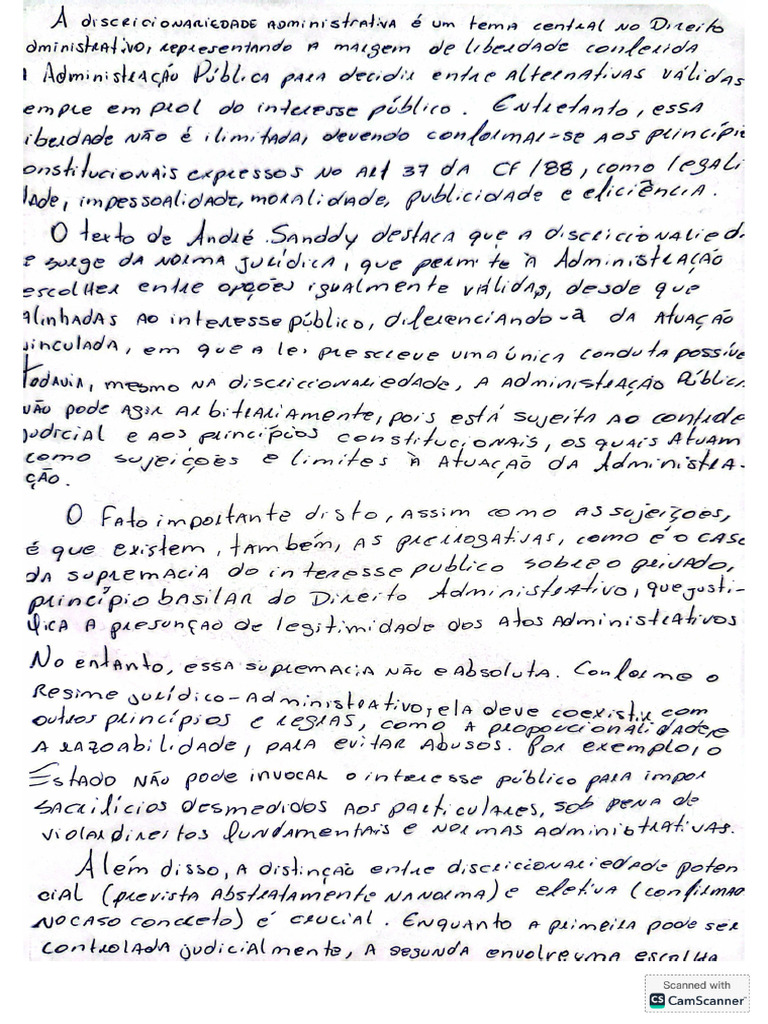 A discricionariedade administrativa é um tema central no Direito
dministrativo, representando a margem de liberdade conferida
Administração Pública para decidir entre alternativas válidas
empre em prol do interesse público. Entretanto, essa
iberdade não é ilimitada, devendo conformar-se aos princípio
onstitucionais expressos no Art 37 da CF/88, como legali
dade, impessoalidade, moralidade, publicidade e eficiência.
O texto de André Sanddy destaca que a discriccionaried.
e surge da norma jurídica, que permite à Administração
escolher entre opções igualmente válidas, desde que
alinhadas ao interesse público, diferenciando-a da atuação
vinculada, em que a lei prescreve uma única conduta possíve
Todavia, mesmo na discriccionariedade, a administração Públic
não pode agir arbitrariamente, pois está sujeita ao controle
judicial e aos princípios constitucionais, os quais atuam
como sujeições e limites à atuação da Administra-
ção.
O fato importante disto, assim como as sujeições,
é que existem, também, as prerrogativas, como é o caso
da supremacia do interesse publico sobre o privado,
princípio basilar do Direito Administrativo, que justi-
fica a presunção de legitimidade dos atos administrativos
No entanto, essa supremacia não e absoluta. Conforme o
Regime jurídico-administrativo, ela deve coexistir com
outros princípios e regras, como a proporcionalidade e
a razoabilidade, para evitar abusos. Por exemplo, o
Estado não pode invocar o interesse público para impor
sacrifícios desmedidos aos particulares, sob pena de
violar direitos fundamentais e normas administrativas.
Além disso, a distinção entre discricionariedade poten
cial (prevista abstratamente na norma) e efetiva (confirmad
no caso concreto) é crucial. Enquanto a primeira pode ser
controlada judicialmente, a segunda envolve uma escolha
Scanned with
CS CamScanner